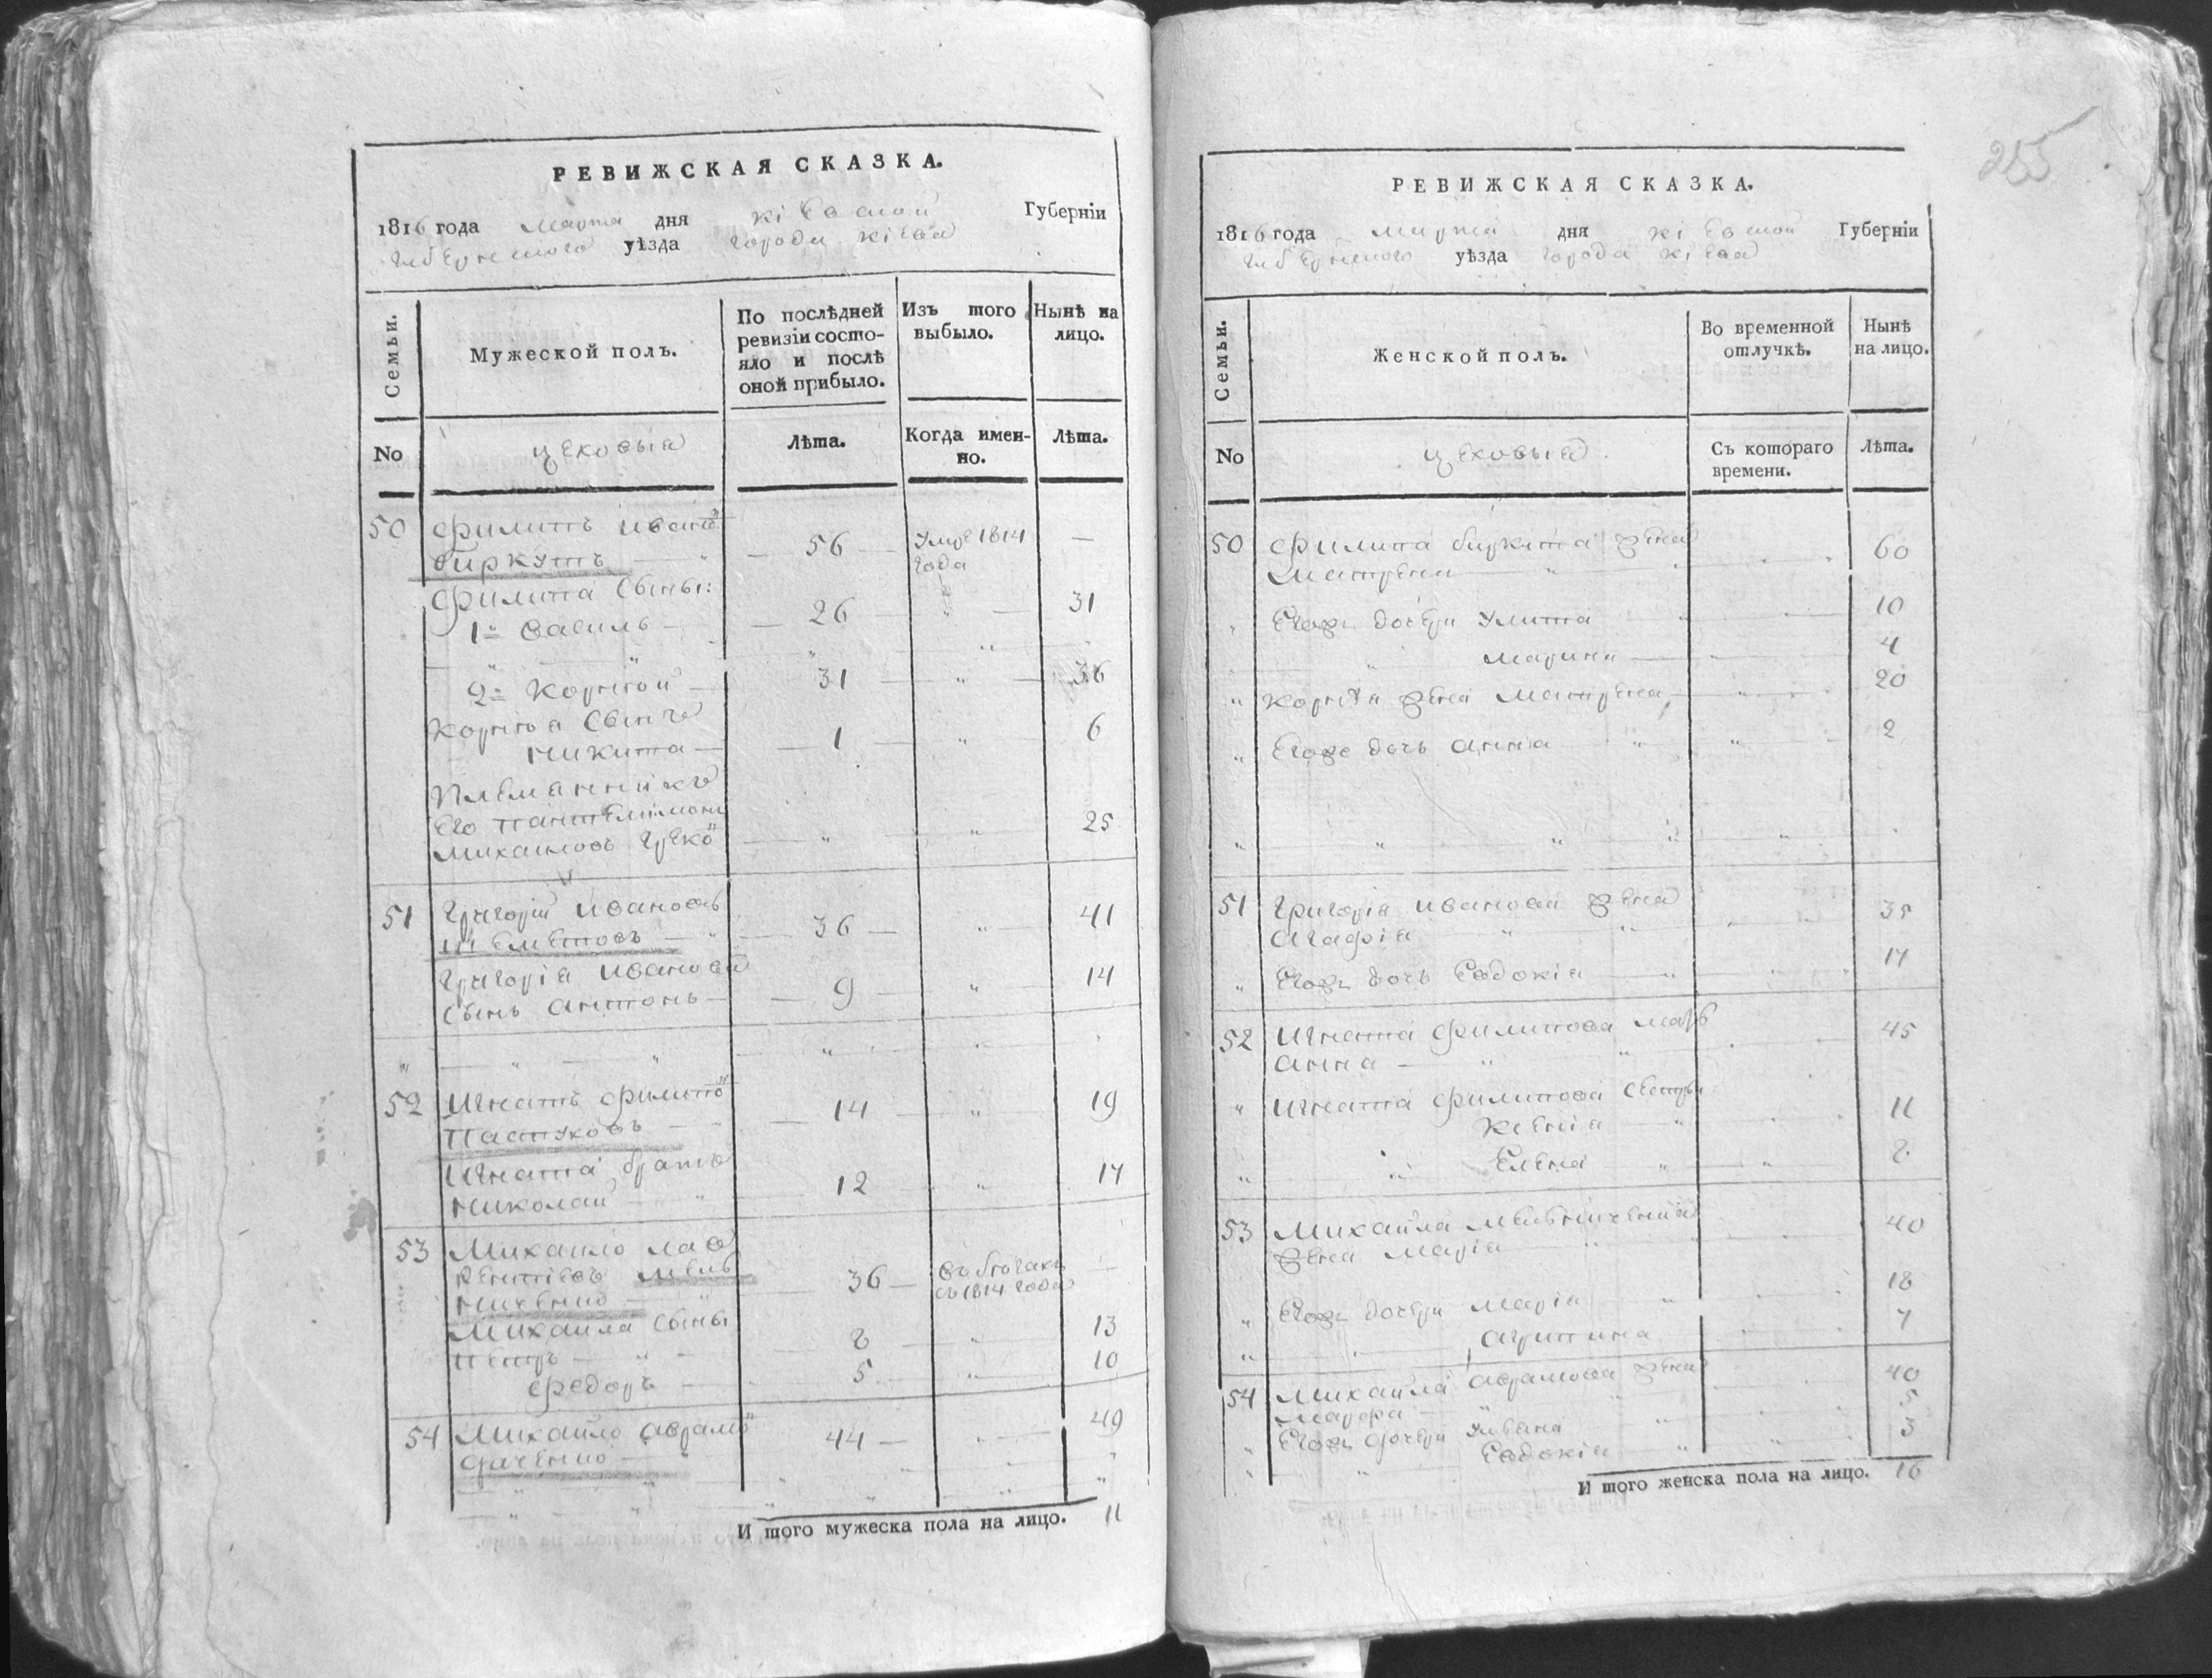 РЕВИЖСКАЯ СКАЗКА.
1816 года марта дня кіевской Губерніи
губернского уѣзда города кіева
Семьи.
Мужеской полъ.
По послѣдней ревизіи состояло и послѣ оной прибыло.
Изъ того выбыло.
Нынѣ на лицо.
No
цеховыя
Лѣта.
Когда именно.
Лѣта.
50 Филипъ Ивано
Биркутъ 56 Умре 1814 года —
Филипа Сыны:
1й Василь 26 31
2й Корней 31 36
Корнея Сынъ
Никита 1 6
Племянникъ
Его Пантелимонъ
Михаиловъ Греко 25
51 Григорій Ивановъ
Шеметовъ 36 41
Григорія Иванова
Сынъ Антонъ 9 14
52 Игнатъ Филипо
Пастуховъ 14 19
Игната братъ
Николай 12 17
53 Михайло Лав
рентіевъ Мель
ниченко 36 въ бегахъ съ 1814 года —
Михайла Сыны
Петръ 8 13
Федоръ 5 10
54 Михайло Аврамо
44 49
Итого мужеска пола на лицо. 11
РЕВИЖСКАЯ СКАЗКА.
255
1816 года марта дня кіевской Губерніи
губернского уѣзда города кіева
Семьи.
Женской полъ.
Во временной отлучкѣ.
Нынѣ на лицо.
No
цеховыя
Съ котораго времени.
Лѣта.
50 Филипа Биркута жена
Матрена 60
Егожъ дочери Улита 10
Марина 4
Корнея жена Матрена 20
Егоже дочь Анна 2
51 Григорія Иванова жена
Агафія 35
Егожъ дочь Евдокія 17
52 Игната Филипова мать
Анна 45
Игната Филипова Сестры
Ксенія 11
Елена 8
53 Михайла Мельниченка
жена Марія 40
Егожъ дочери Марія 18
Агрипина 7
54 Михайла Аврамова жена 40
Марфа 5
Егожъ дочери Ульяна 3
Евдокія
Итого женска пола на лицо. 16